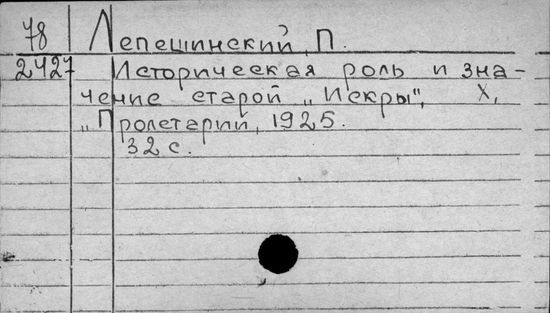 78 Лепешинский, П.
2427 Историческая роль и зна-
чение старой „Искры", Х.,
„Пролетарий, 1925.
32 с.